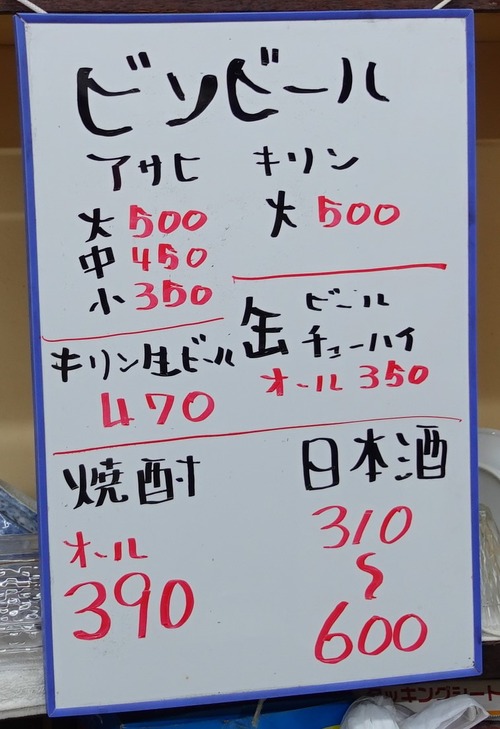 ビンビール
アサヒ
大 500
中 450
小 350
キリン
大 500
缶 ビール
チューハイ
オール 350
キリン生ビール
470
焼酎
オール
390
日本酒
310
〜
600
ッキングシート